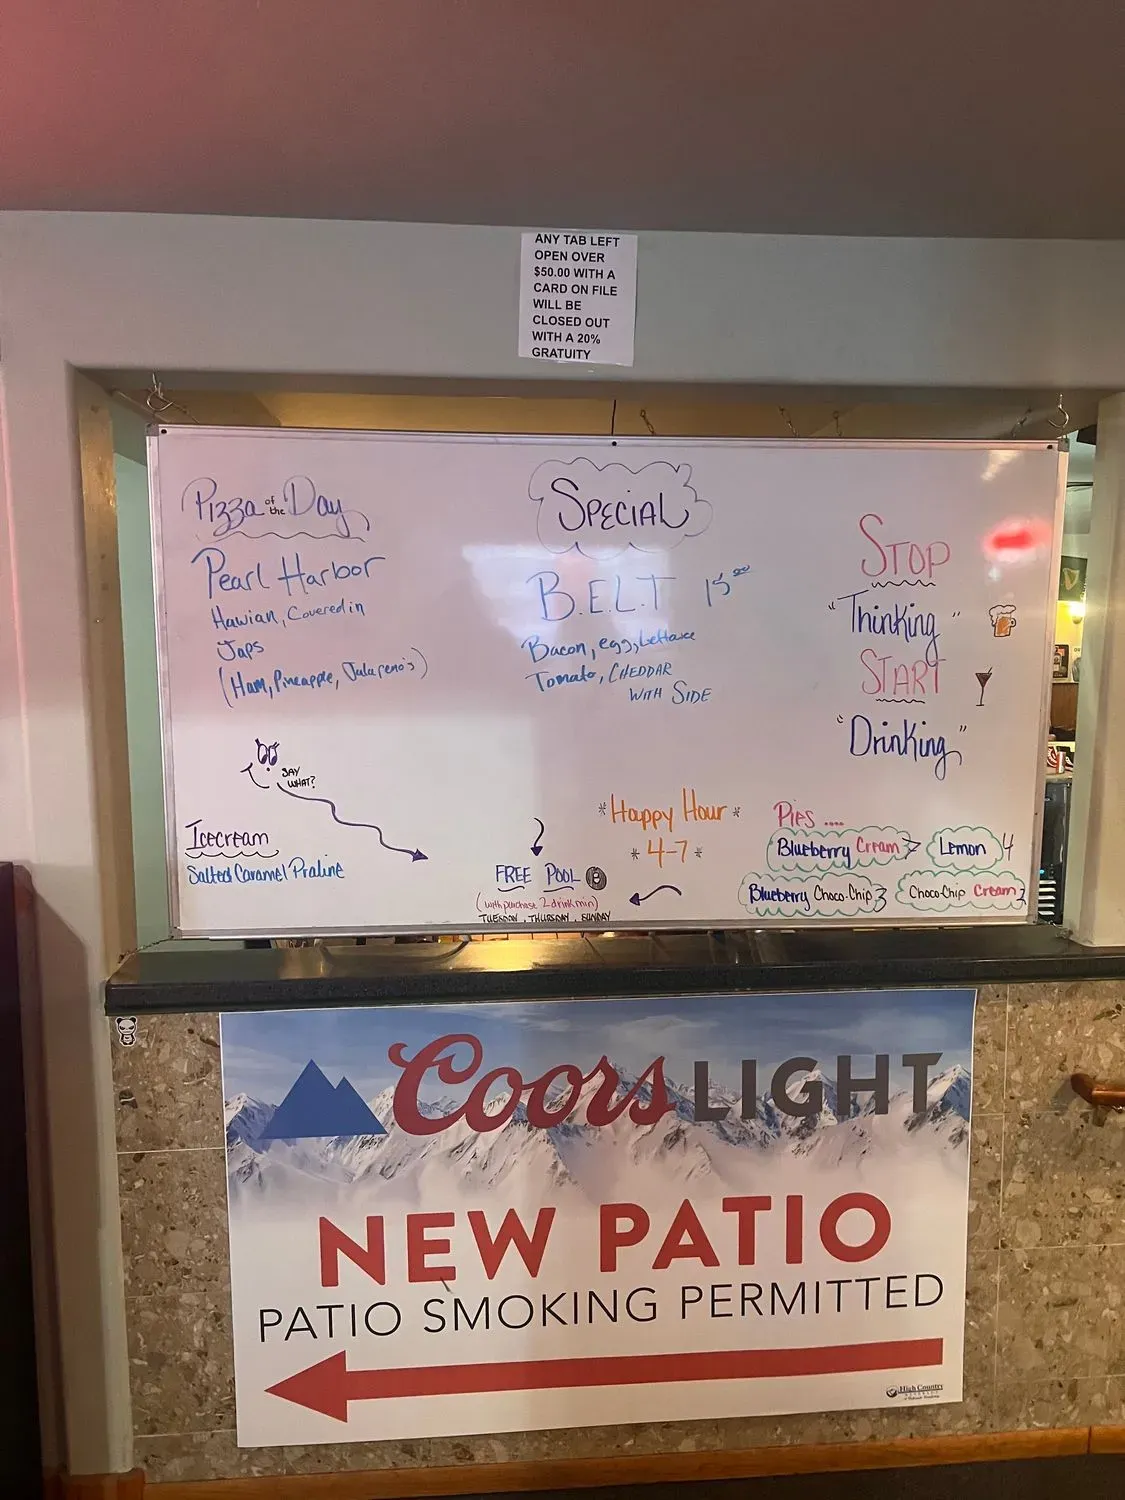 ANY TAB LEFT
OPEN OVER
$50.00 WITH A
CARD ON FILE
WILL BE
CLOSED OUT
WITH A 20%
GRATUITY
Pizza of the Day
Pearl Harbor
Hawian, Covered in
Japs
(Ham, Pineapple, Jalapeno's)
SAY
WHAT?
Icecream
Salted Caramel Praline
SPECIAL
B.E.L.T 15.00
Bacon, egg, Lettuce
Tomato, CHEDDAR
WITH SIDE
*Happy Hour*
*4-7*
FREE POOL
(with purchase 2 drink min)
TUESDAY, THURSDAY, SUNDAY
STOP
"Thinking"
START
"Drinking"
Pies ....
Blueberry Cream Lemon 4
Blueberry Choco-Chip 3 Choco-Chip Cream 2
Coors LIGHT
NEW PATIO
PATIO SMOKING PERMITTED
High Country